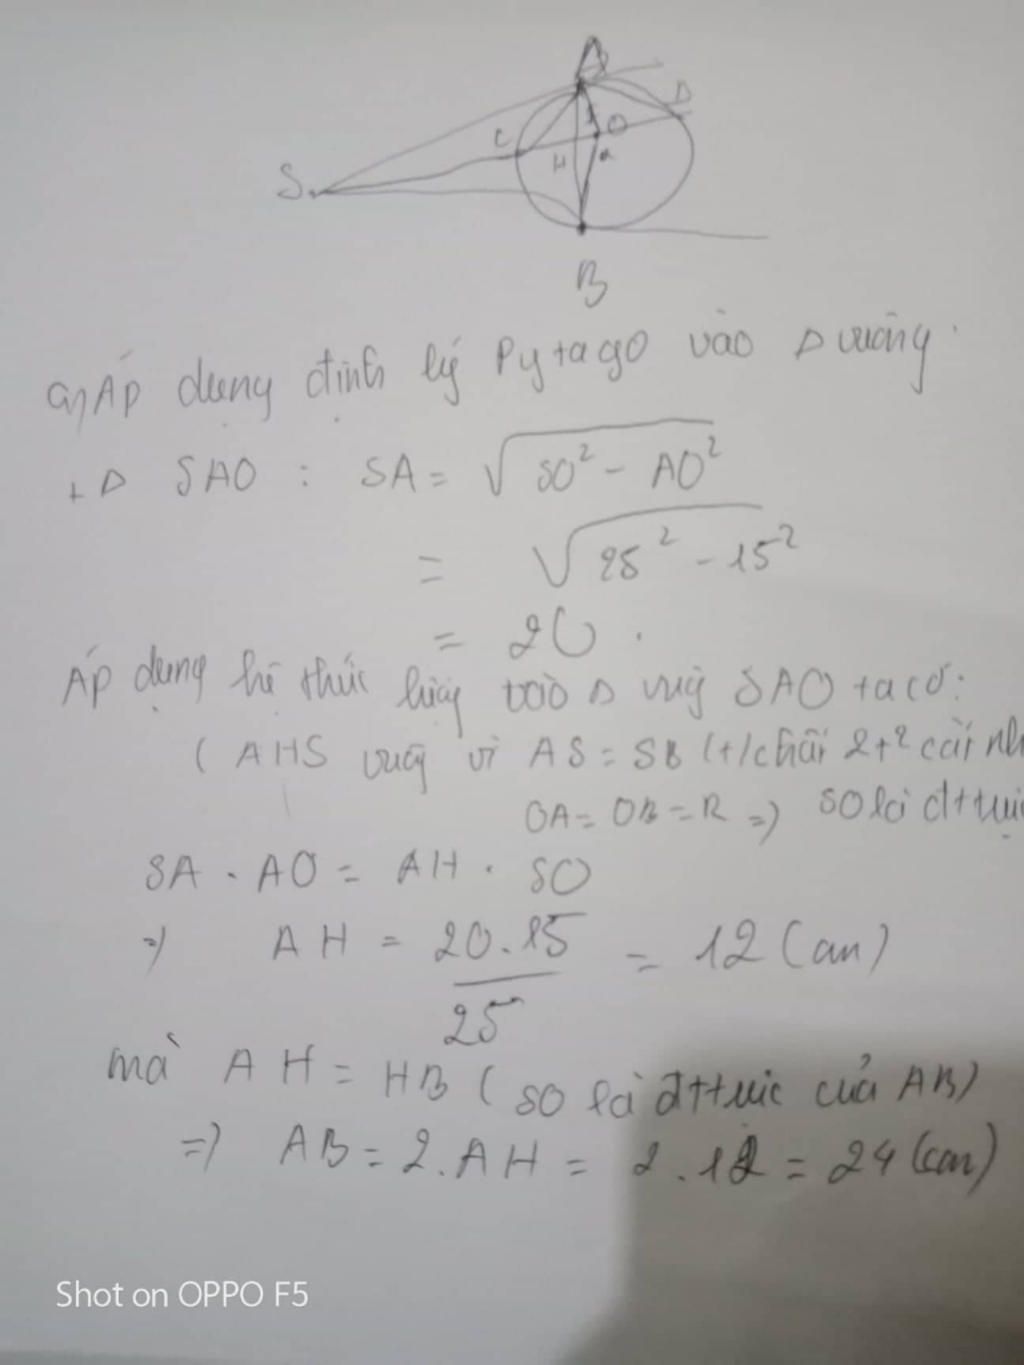 A
D
C
O
H
R
S
B
a) Áp dụng định lý Pytago vào Δ vuông
+ Δ SAO : SA = √SO² - AO²
= √25² - 15²
= 20.
Áp dụng hệ thức lượng vào Δ vuông SAO ta có:
( AHS vuông vì AS = SB (t/chất 2 t² cắt nh
OA = OB = R => SO là đttrực
SA . AO = AH . SO
=> AH = 20.15 / 25 = 12 (cm)
mà AH = HB ( SO là đttrực của AB)
=> AB = 2.AH = 2.12 = 24 (cm)
Shot on OPPO F5